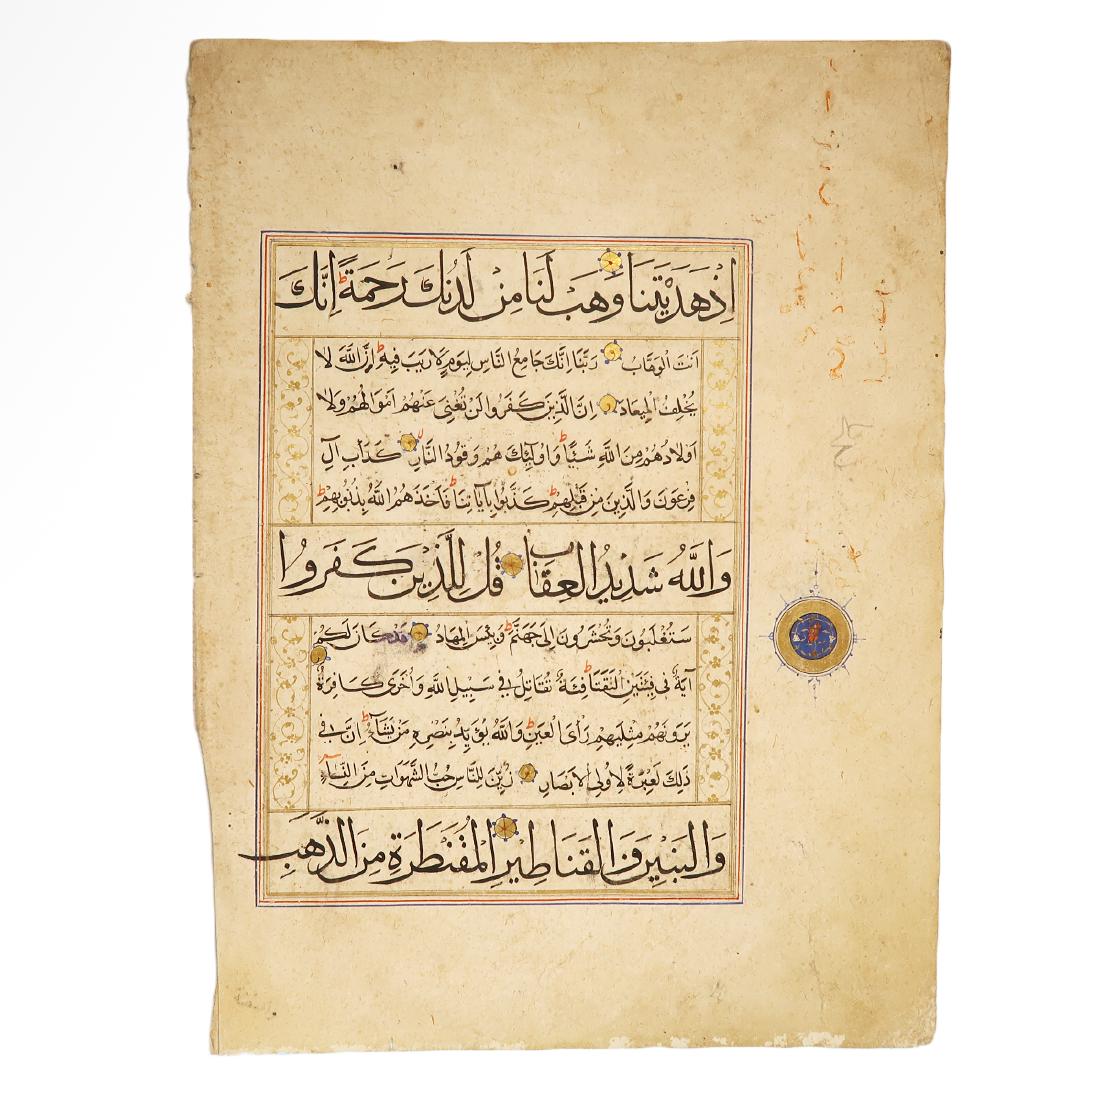 اِذْ هَدَيْتَنَا وَهَبْ لَنَا مِنْ لَدُنْكَ رَحْمَةً اِنَّكَ
اَنْتَ الْوَهَّابُ رَبَّنَا اِنَّكَ جَامِعُ النَّاسِ لِيَوْمٍ لَا رَيْبَ فِيهِ اِنَّ اللّٰهَ لَا
يُخْلِفُ الْمِيعَادَ اِنَّ الَّذِينَ كَفَرُوا لَنْ تُغْنِيَ عَنْهُمْ اَمْوَالُهُمْ وَلَا
اَوْلَادُهُمْ مِنَ اللّٰهِ شَيْئًا وَاُولٰئِكَ هُمْ وَقُودُ النَّارِ كَدَاْبِ اٰلِ
فِرْعَوْنَ وَالَّذِينَ مِنْ قَبْلِهِمْ كَذَّبُوا بِاٰيَاتِنَا فَاَخَذَهُمُ اللّٰهُ بِذُنُوبِهِمْ
وَاللّٰهُ شَدِيدُ الْعِقَابِ قُلْ لِلَّذِينَ كَفَرُوا
سَتُغْلَبُونَ وَتُحْشَرُونَ اِلَى جَهَنَّمَ وَبِئْسَ الْمِهَادُ قَدْ كَانَ لَكُمْ
اٰيَةٌ فِي فِئَتَيْنِ الْتَقَتَا فِئَةٌ تُقَاتِلُ فِي سَبِيلِ اللّٰهِ وَاُخْرَى كَافِرَةٌ
يَرَوْنَهُمْ مِثْلَيْهِمْ رَاْيَ الْعَيْنِ وَاللّٰهُ يُؤَيِّدُ بِنَصْرِهِ مَنْ يَشَآءُ اِنَّ فِي
ذٰلِكَ لَعِبْرَةً لِاُولِي الْاَبْصَارِ زُيِّنَ لِلنَّاسِ حُبُّ الشَّهَوَاتِ مِنَ النِّسَآءِ
وَالْبَنِينَ وَالْقَنَاطِيرِ الْمُقَنْطَرَةِ مِنَ الذَّهَبِ